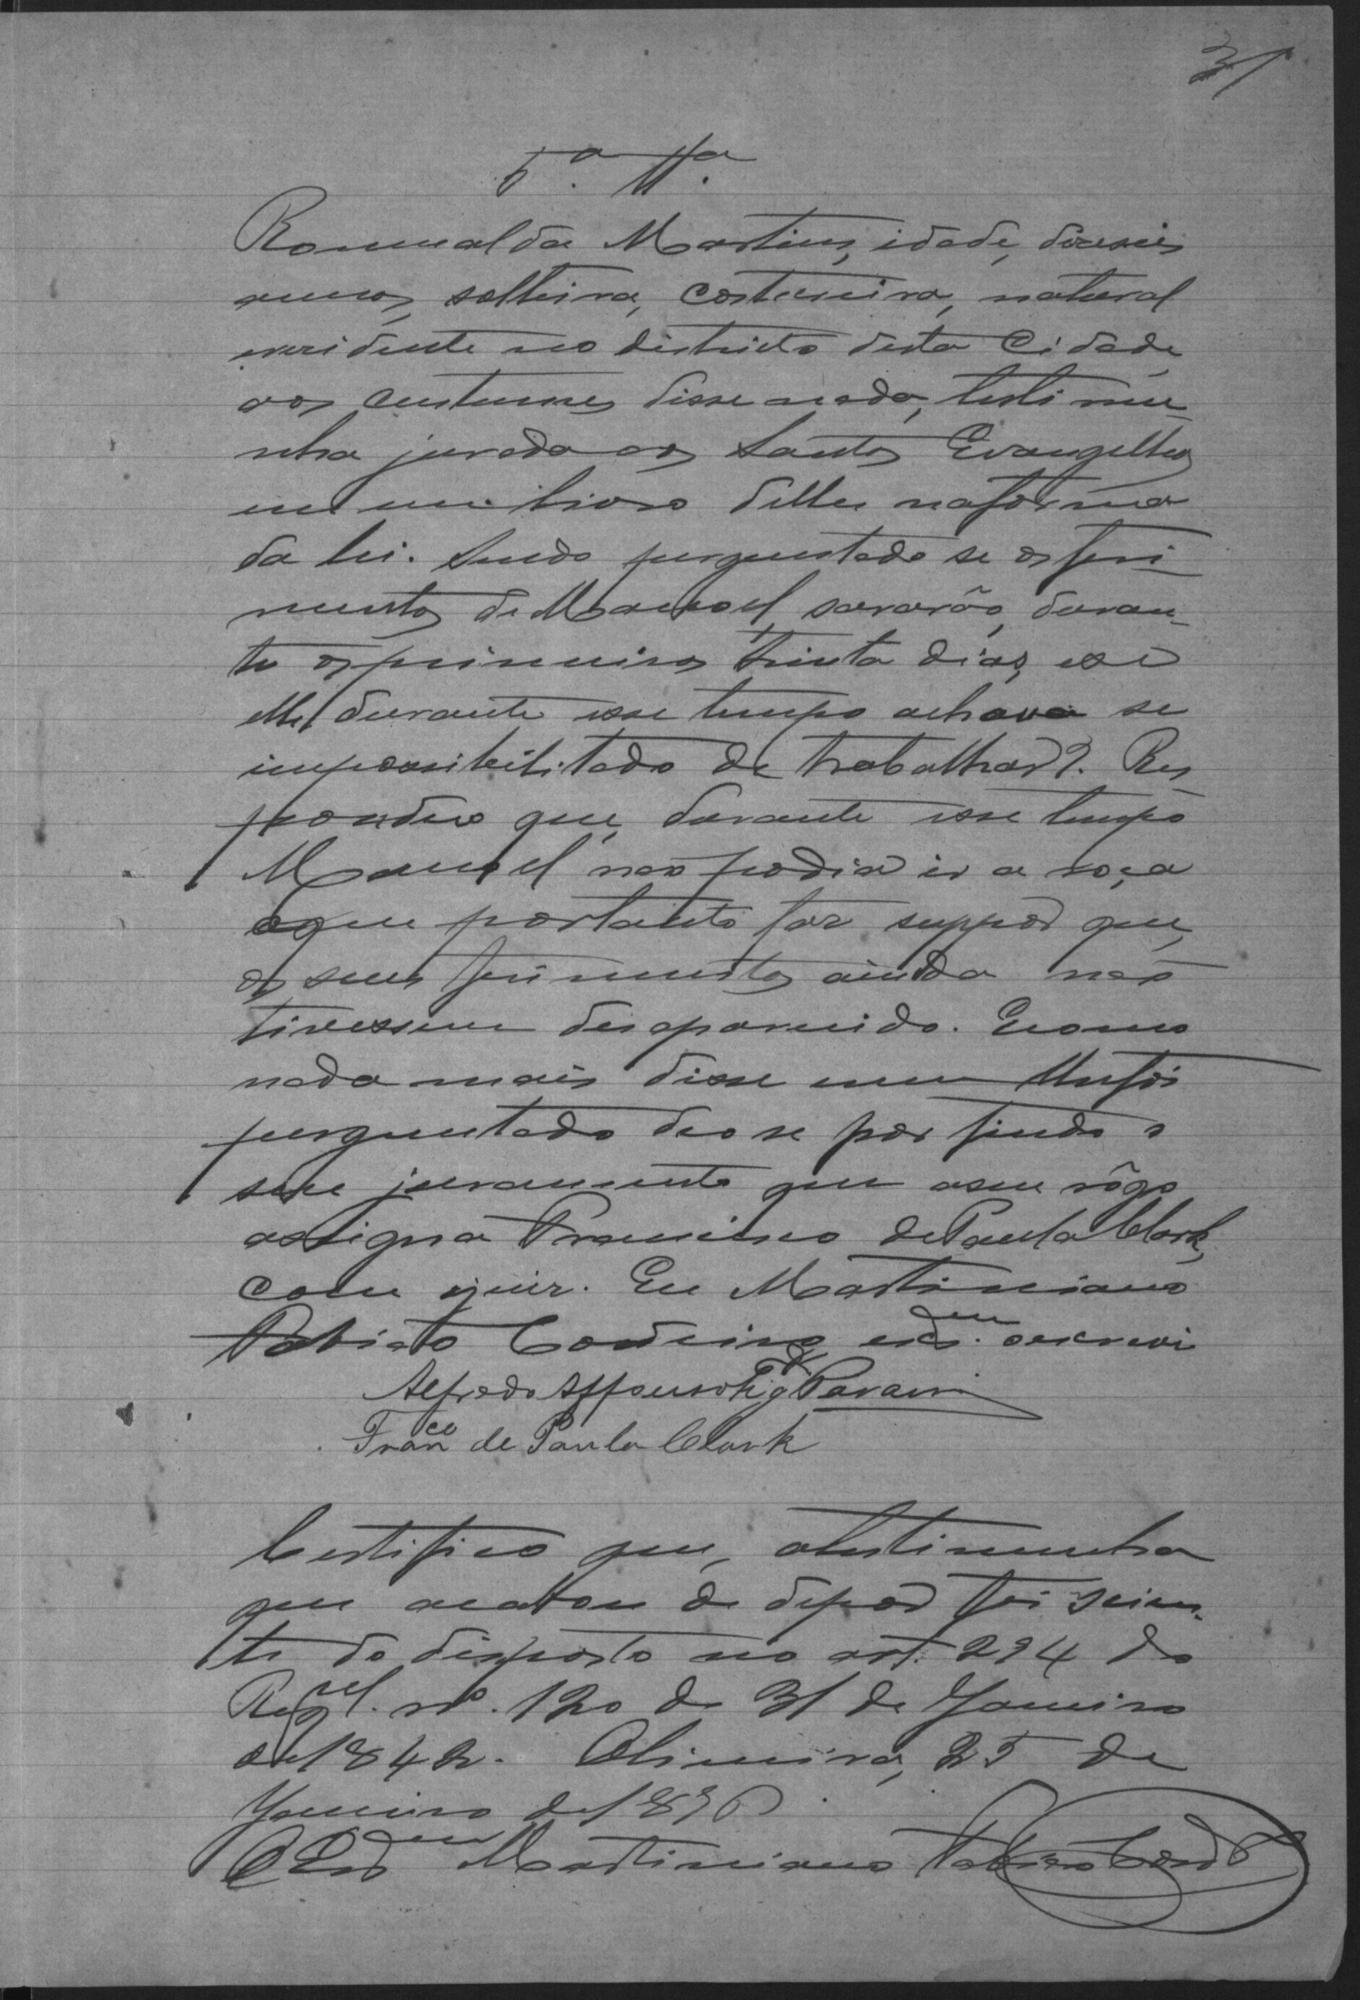 31
5ª Tª.
Romualda Martins, idade, deseseis
annos, solteira, costureira, natural
e residente no districto desta Cidade,
aos custumes disse nada, testimu
nha jurada aos Santos Evangelhos
em um livro delles na forma
da lei. Sendo perguntado se os feri
mentos de Manoel, sararão, duran
te os primeiros trinta dias, e se
elle durante esse tempo achava se
impossibilitado de trabalhar?. Res
pondeo que, durante esse tempo
Manoel não podia ir a roça
o que portanto faz suppor que,
os seus ferimentos ainda não
tivessem desaparecido. E como
nada mais disse nem lhe foi
perguntado deo se por findo o
seu juramento que a seu rôgo
assigna Francisco de Paula Clark,
com o juiz. Eu Martiniano
Cordeiro, escm. o escrevi
Alfredo Affonso
Francº de Paula Clark
Certifico que, a testimunha
que acabou de depor foi scien
te do disposto no art. 294 do
Regul. nº. 120 de 31 de Janeiro
de 1842. Oliveira, 25 de
Janeiro de 1896.
O Escm Martiniano Cordº